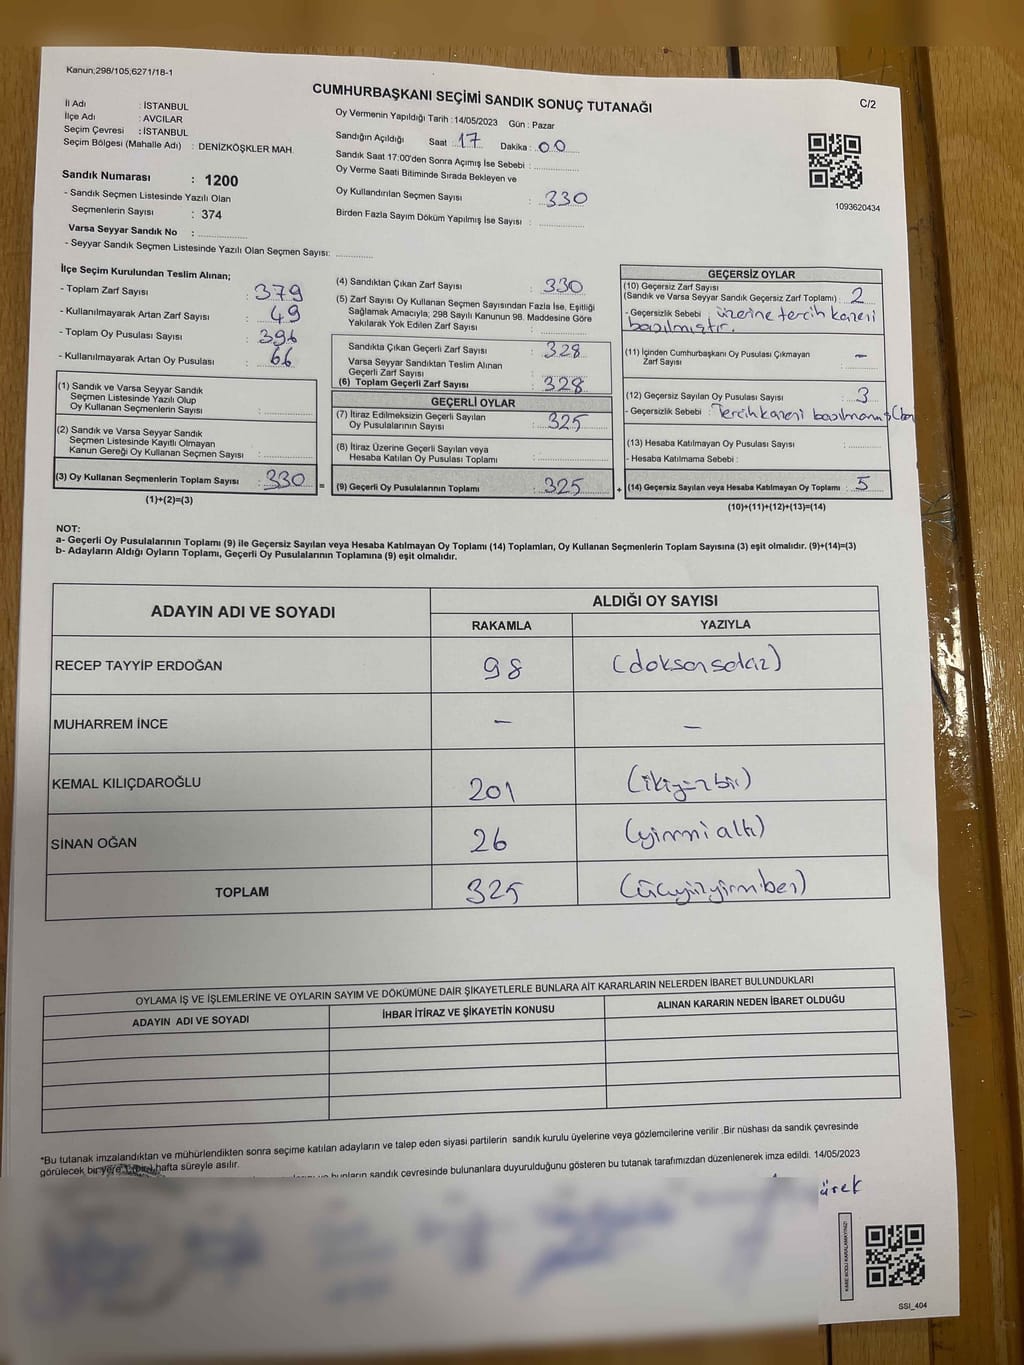 Kanun;298/105;6271/18-1
CUMHURBAŞKANI SEÇİMİ SANDIK SONUÇ TUTANAĞI
C/2
İl Adı : İSTANBUL
İlçe Adı : AVCILAR
Seçim Çevresi : İSTANBUL
Seçim Bölgesi (Mahalle Adı) : DENİZKÖŞKLER MAH.
Sandık Numarası : 1200
- Sandık Seçmen Listesinde Yazılı Olan
Seçmenlerin Sayısı : 374
Varsa Seyyar Sandık No :
- Seyyar Sandık Seçmen Listesinde Yazılı Olan Seçmen Sayısı:
Oy Vermenin Yapıldığı Tarih : 14/05/2023 Gün : Pazar
Sandığın Açıldığı Saat : 17 Dakika : 00
Sandık Saat 17:00'den Sonra Açımış İse Sebebi :
Oy Verme Saati Bitiminde Sırada Bekleyen ve
Oy Kullandırılan Seçmen Sayısı : 330
Birden Fazla Sayım Döküm Yapılmış İse Sayısı :
1093620434
İlçe Seçim Kurulundan Teslim Alınan;
- Toplam Zarf Sayısı : 379
- Kullanılmayarak Artan Zarf Sayısı : 49
- Toplam Oy Pusulası Sayısı : 396
- Kullanılmayarak Artan Oy Pusulası : 66
(1) Sandık ve Varsa Seyyar Sandık
Seçmen Listesinde Yazılı Olup
Oy Kullanan Seçmenlerin Sayısı :
(2) Sandık ve Varsa Seyyar Sandık
Seçmen Listesinde Kayıtlı Olmayan
Kanun Gereği Oy Kullanan Seçmen Sayısı :
(3) Oy Kullanan Seçmenlerin Toplam Sayısı : 330 =
(1)+(2)=(3)
(4) Sandıktan Çıkan Zarf Sayısı : 330
(5) Zarf Sayısı Oy Kullanan Seçmen Sayısından Fazla İse, Eşitliği
Sağlamak Amacıyla; 298 Sayılı Kanunun 98. Maddesine Göre
Yakılarak Yok Edilen Zarf Sayısı :
Sandıkta Çıkan Geçerli Zarf Sayısı : 328
Varsa Seyyar Sandıktan Teslim Alınan
Geçerli Zarf Sayısı :
(6) Toplam Geçerli Zarf Sayısı : 328
GEÇERLİ OYLAR
(7) İtiraz Edilmeksizin Geçerli Sayılan
Oy Pusulalarının Sayısı : 325
(8) İtiraz Üzerine Geçerli Sayılan veya
Hesaba Katılan Oy Pusulası Toplamı :
(9) Geçerli Oy Pusulalarının Toplamı : 325 +
GEÇERSİZ OYLAR
(10) Geçersiz Zarf Sayısı
(Sandık ve Varsa Seyyar Sandık Geçersiz Zarf Toplamı) : 2
- Geçersizlik Sebebi : üzerine tercih kaşesi
basılmıştır.
(11) İçinden Cumhurbaşkanı Oy Pusulası Çıkmayan
Zarf Sayısı : —
(12) Geçersiz Sayılan Oy Pusulası Sayısı : 3
- Geçersizlik Sebebi : Tercih kaşesi
(13) Hesaba Katılmayan Oy Pusulası Sayısı :
- Hesaba Katılmama Sebebi :
(14) Geçersiz Sayılan veya Hesaba Katılmayan Oy Toplamı : 5
(10)+(11)+(12)+(13)=(14)
NOT:
a- Geçerli Oy Pusulalarının Toplamı (9) ile Geçersiz Sayılan veya Hesaba Katılmayan Oy Toplamı (14) Toplamları, Oy Kullanan Seçmenlerin Toplam Sayısına (3) eşit olmalıdır. (9)+(14)=(3)
b- Adayların Aldığı Oyların Toplamı, Geçerli Oy Pusulalarının Toplamına (9) eşit olmalıdır.
ADAYIN ADI VE SOYADI
ALDIĞI OY SAYISI
RAKAMLA YAZIYLA
RECEP TAYYİP ERDOĞAN 98 (doksansekiz)
MUHARREM İNCE — —
KEMAL KILIÇDAROĞLU 201 (ikiyüzbir)
SİNAN OĞAN 26 (yirmi altı)
TOPLAM 325 (üçyüzyirmibeş)
OYLAMA İŞ VE İŞLEMLERİNE VE OYLARIN SAYIM VE DÖKÜMÜNE DAİR ŞİKAYETLERLE BUNLARA AİT KARARLARIN NELERDEN İBARET BULUNDUKLARI
ADAYIN ADI VE SOYADI İHBAR İTİRAZ VE ŞİKAYETİN KONUSU ALINAN KARARIN NEDEN İBARET OLDUĞU
*Bu tutanak imzalandıktan ve mühürlendikten sonra seçime katılan adayların ve talep eden siyasi partilerin sandık kurulu üyelerine veya gözlemcilerine verilir .Bir nüshası da sandık çevresinde
görülecek bir yere 1 (bir) hafta süreyle asılır.
bunların sandık çevresinde bulunanlara duyurulduğunu gösteren bu tutanak tarafımızdan düzenlenerek imza edildi. 14/05/2023
KARE KODU KARALAMAYINIZ!
SSI_404